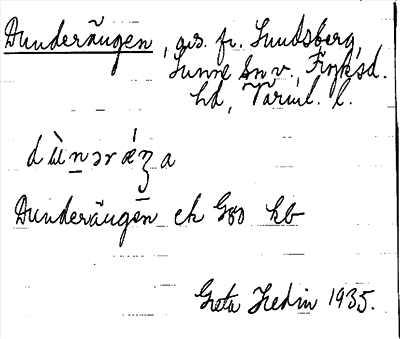 Dunderäugen, gs. fr. Sundsberg,
Sunne sn v., Fryksd.
hd, Värml. l.
dùnərǽʒa
Dunderäugen ek G80 kb
Greta Hedin 1935.